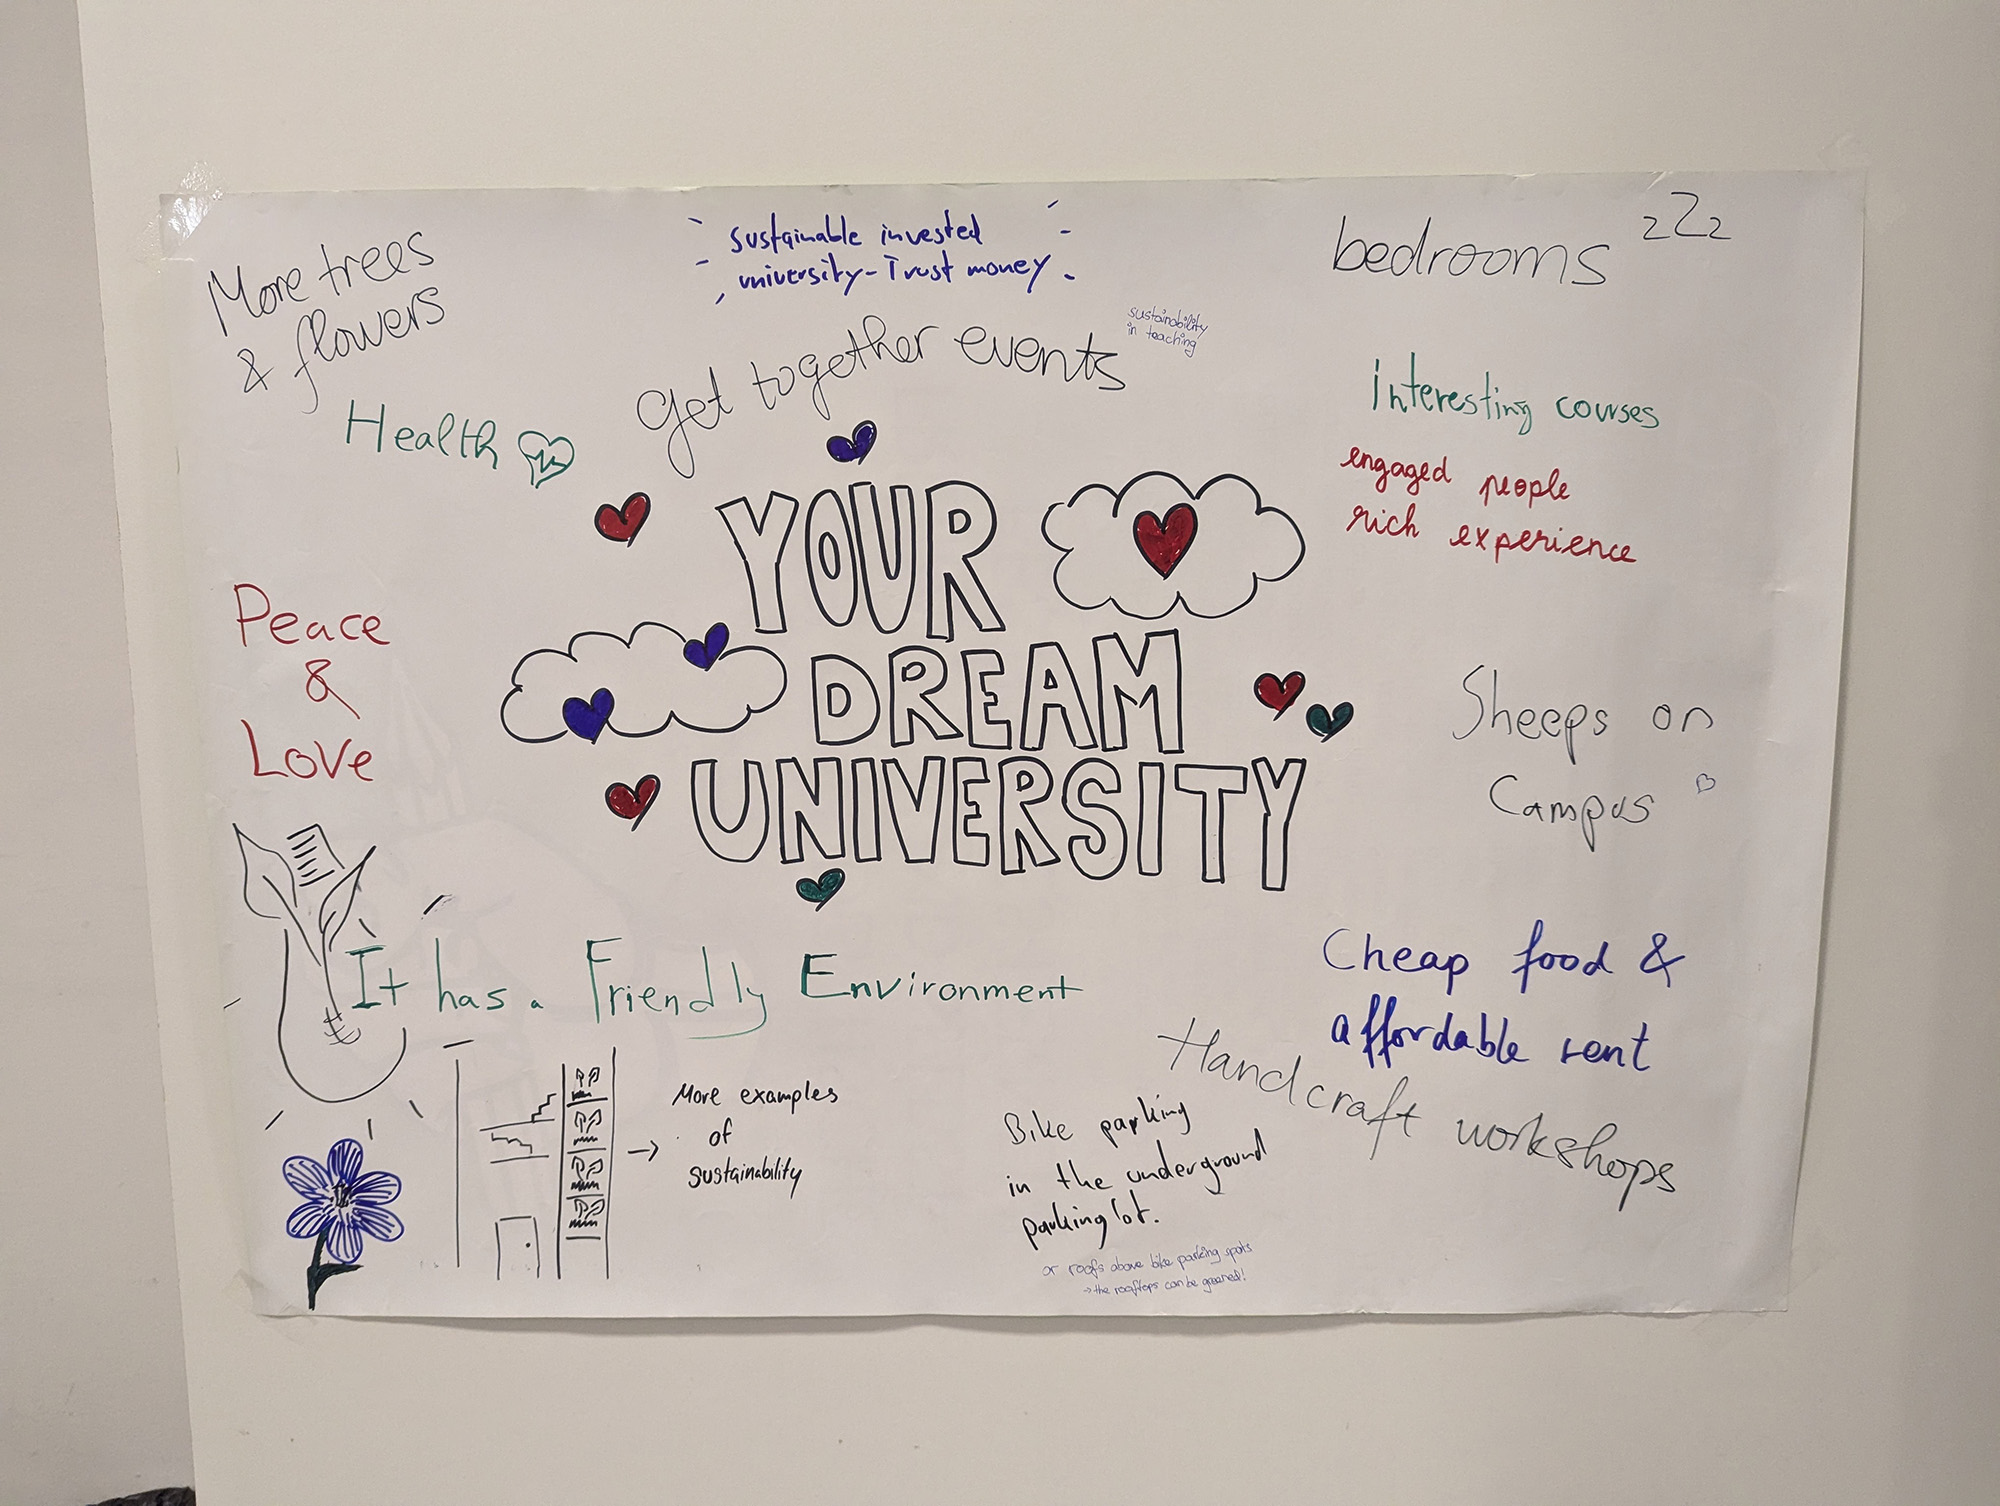 More trees
& flowers
sustainable invested
university-Trust money
bedrooms zZz
get together events
sustainability
in teaching
Health
interesting courses
engaged people
rich experience
YOUR
DREAM
UNIVERSITY
Peace
&
Love
Sheeps on
Campus
It has a Friendly Environment
Cheap food &
affordable rent
Handcraft workshops
More examples
of
sustainability
Bike parking
in the underground
parking lot.
or roofs above bike parking spots
→the rooftops can be greened!